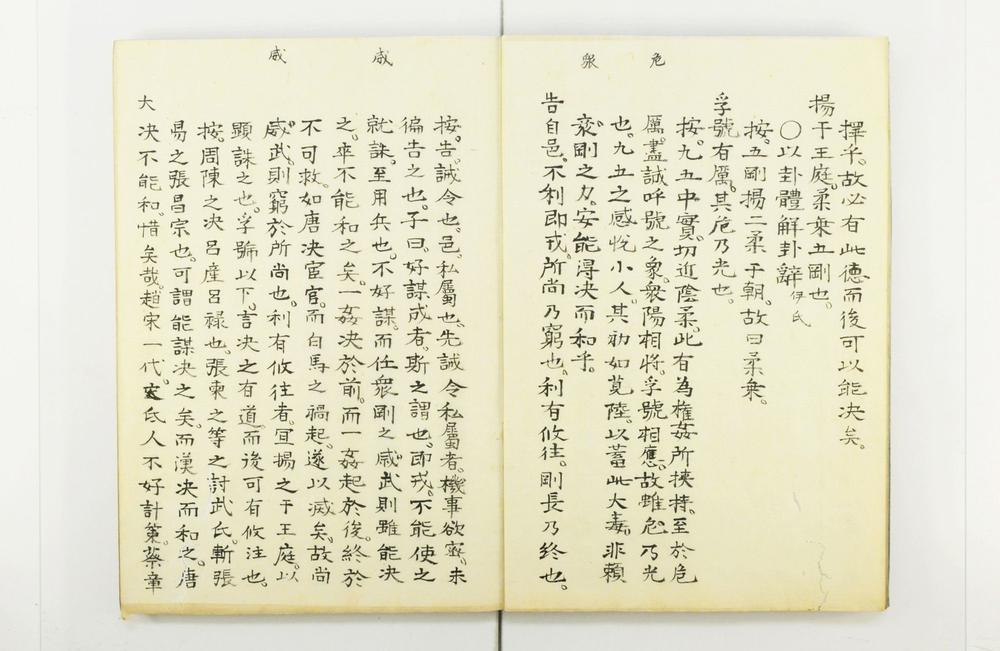 危
衆
擇乎。故必有此徳而後可以能决矣。
揚于王庭。柔乗五剛也。
〇以卦體解卦辭伊氏
按。五剛揚二柔于朝。故曰柔乗。
孚號有厲。其危乃光也。
按。九五中實。切近陰柔。此有為權姦所挾持。至於危
厲。盡誠呼號之衆。衆陽相将。孚號相應。故雖危乃光
也。九五之感悅小人。其初如莧陸。以蓄此大毒。非賴
衆剛之力。安能得决而和乎。
告自邑。不利即戎。所尚乃窮也。利有攸往。剛長乃終也。
威
威
按。告。誡令也。邑。私屬也。先誡令私屬者。機事欲密。未
徧告之也。子曰。好謀成者。斯之謂也。即戎。不能使之
就誅。至用兵也。不好謀。而任衆剛之威武則雖能决
之。卒不能和之矣。一姦决於前。而一姦起於後。終於
不可救。如唐决宦官。而白馬之禍起。遂以滅矣。故尚
威武。則窮於所尚也。利有攸往者。宜揚之于王庭。以
顯誅之也。孚號以下。言决之有道。而後可有攸注也。
按。周陳之决呂産呂禄也。張柬之等之討武氏。斬張
易之張昌宗也。可謂能謀决之矣。而漢决而和之。唐
决不能和。惜矣哉。趙宋一代。氏人不好計策。蔡章
大